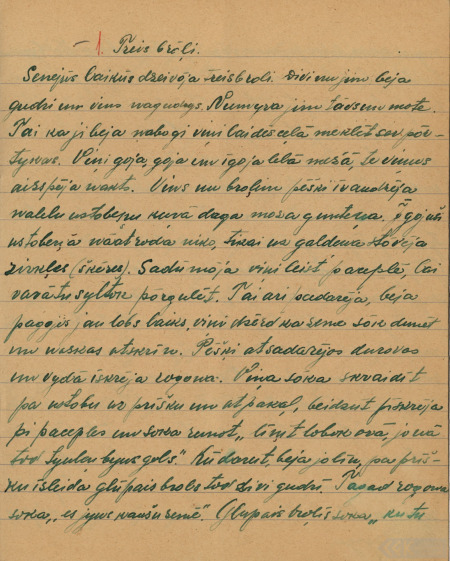 – 1. Treis broļi.
Senejūs laikūs dzeivōja treis broli. Divi nu jim beja
gudri un vīns nagudrys. Numyra jim tāvs un mote.
Tai ka ji beja nabogi viņi laidēs ceļā meklēt sev pōr-
tykas. Viņi gōja, gōja un īgōja lelā mežā, te vinus
aizspēja nakts. Vīns nu broļim pēški īraudzēja
nalelu ustobeņu kurā dega moza gunteņa. Īgojuši
ustobeņā naatroda nikō, tikai uz galdeņa stōvēja
zirkles (škēres). Sadūmōja viņi leist paceplā, lai
varātu syltōk pōrgulēt. Tai ari padarēja, beja
pagōjis jau lobs laiks, viņi dzērd ka zeme sōk dunēt
un naskas atskrīn. Pēški atsadarējos durovas
un vydā īskrēja rogona. Viņa sōka skraidīt
pa ustobu uz prīšku un atpakaļ, beidzūt pīskrēja
pi paceples un soka runot „līnit lobok ōrā, jo nā
tod byus gols." Kū darēt, beja jolin, pa prīš-
ku izleida glupais brols tod divi gudri. Tagad rogona
soka, „es jyus kaušu zemē". Glupais broļis soka „ku tu